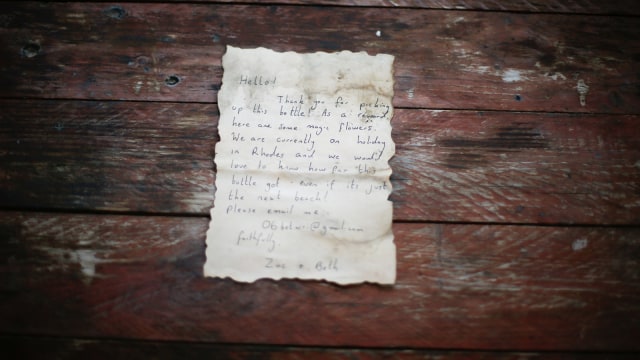 Hello!
Thank you for picking
up this bottle! As a reward,
here are some magic flowers.
We are currently on holiday
in Rhodes and we would
love to know how far this
bottle got - even if its just
the next beach!
Please email me:
@gmail.com
faithfully
Zoe + Beth